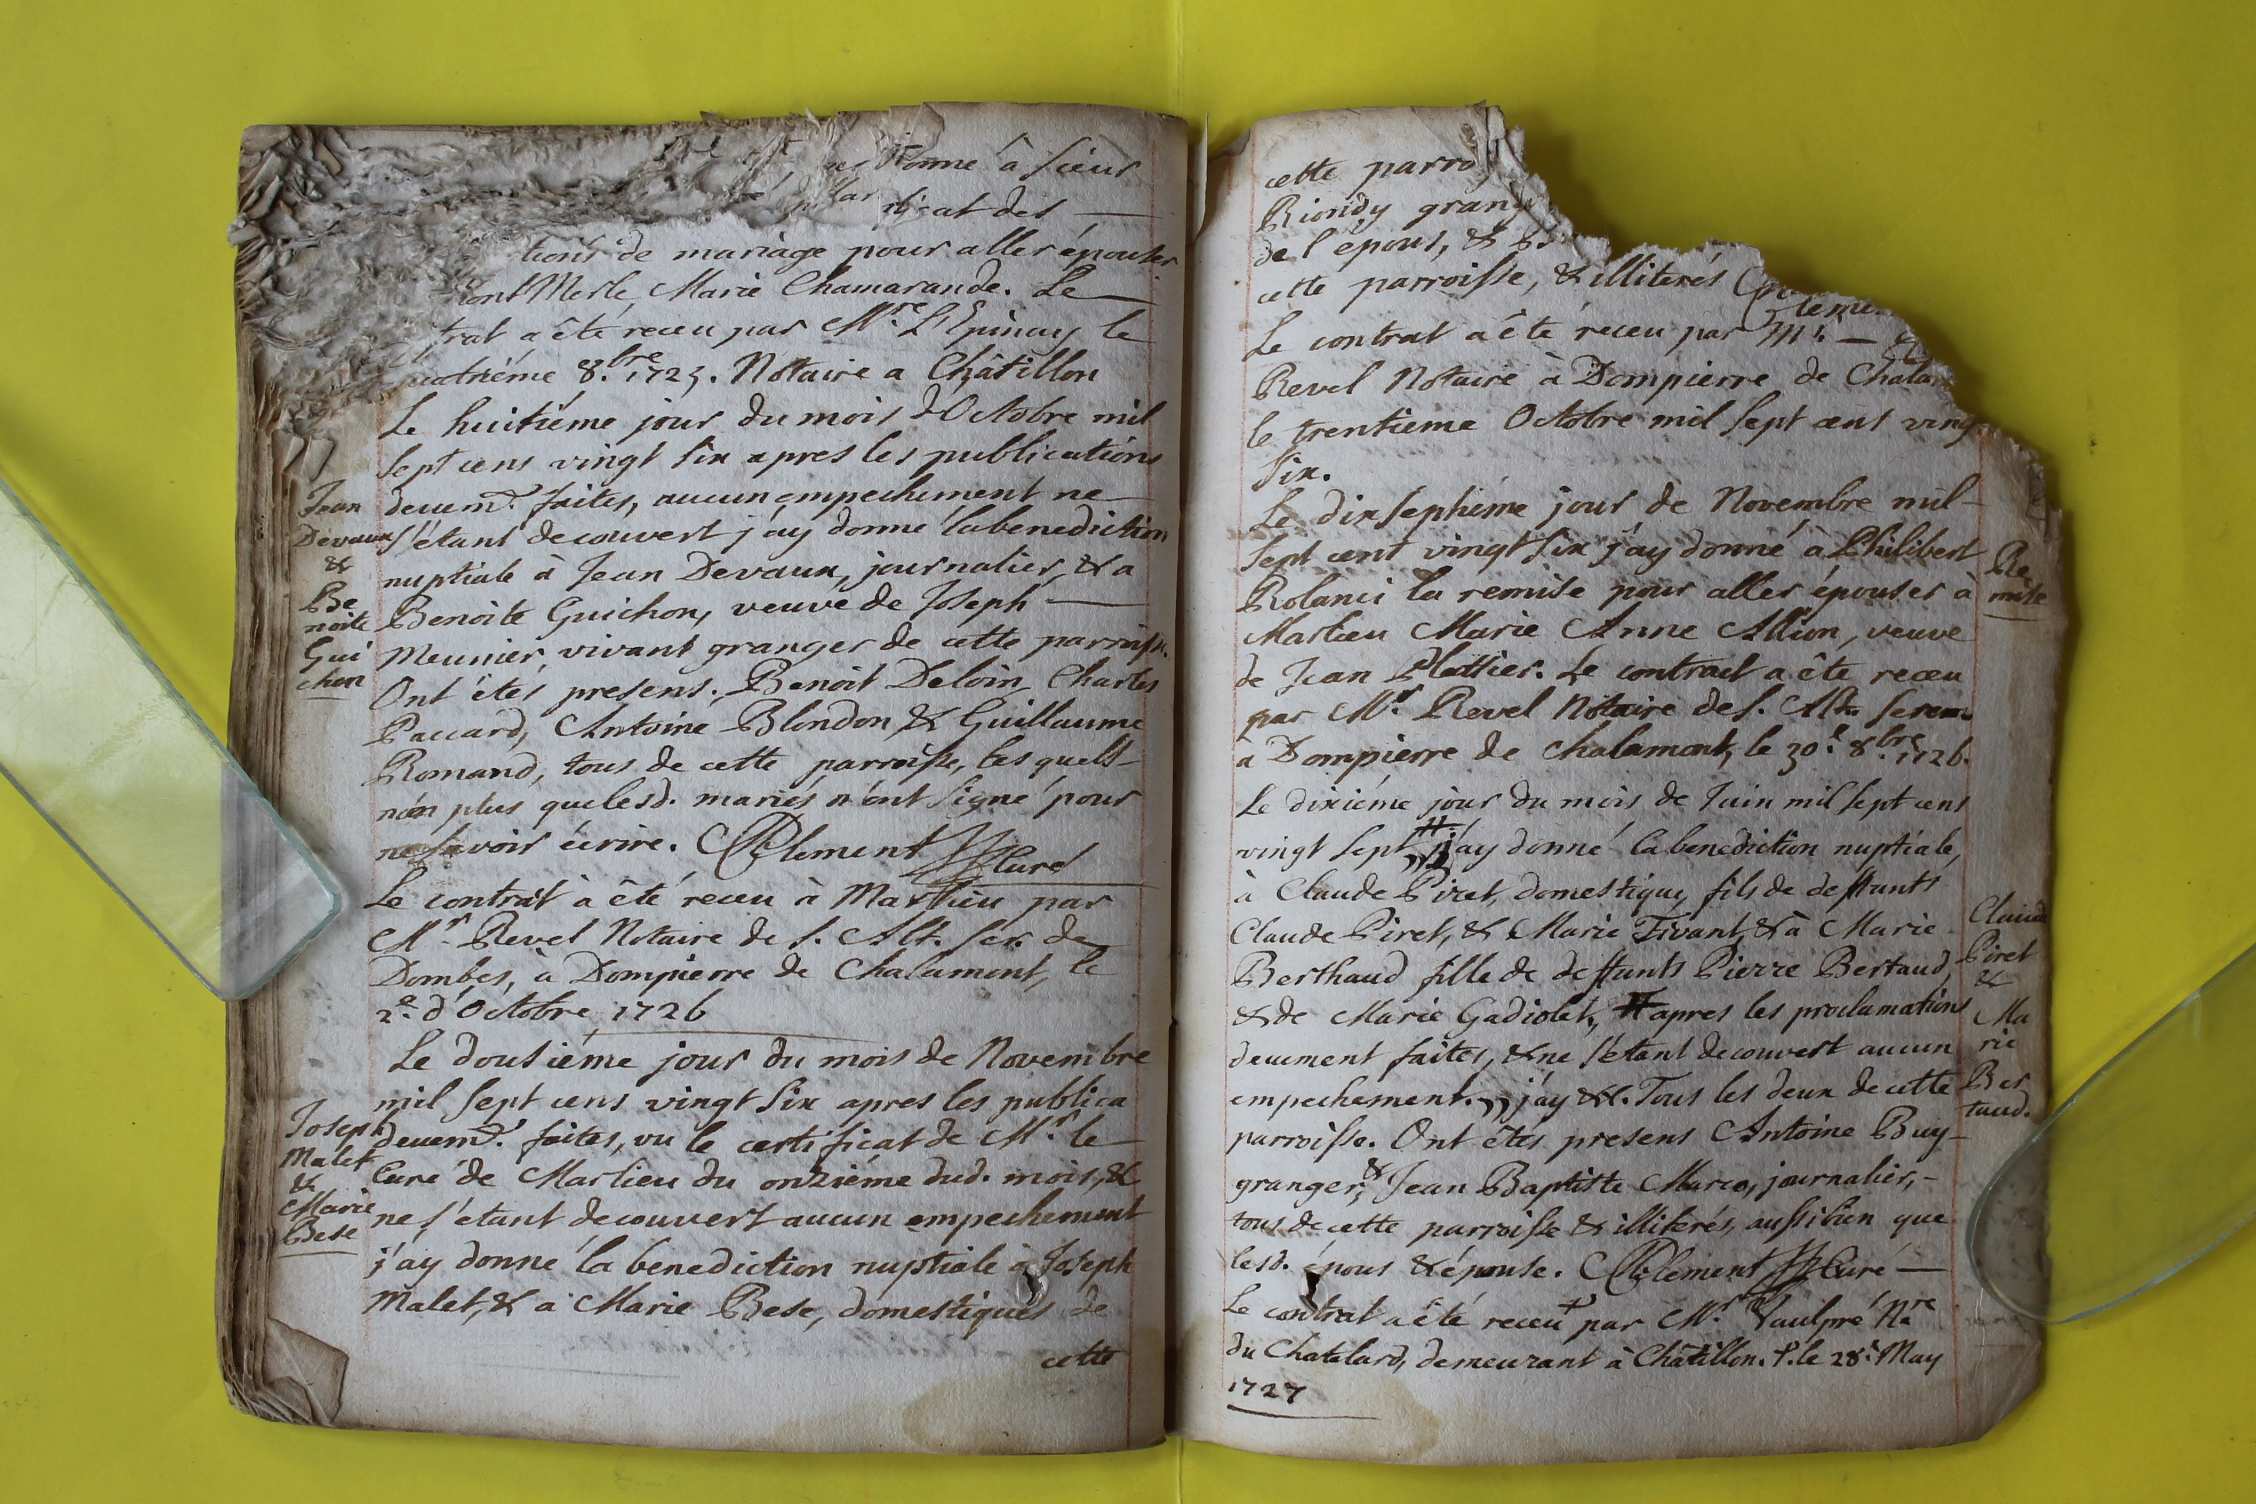 donné à sieur
des —
tions de mariage pour aller épouser
Mont Merle Marie Chamarande. Le
trat a êté receu par M.re L'Epinay le
uatriéme 8.bre 1725. Notaire a Châtillon
Le huitiéme jour du mois d'Octobre mil
sept cens vingt six apres les publications
deuem.t faites, aucun empechement ne
s'étant decouvert j'ay donné la benediction
nuptiale à Jean Devaux, journalier, & a
Benoite Guichon, veuve de Joseph —
Meunier, vivant granger de cette parroisse.
Ont êtés presens. Benoit Deloin, Charles
Paccard, Antoine Blondon & Guillaume
Romand, tous de cette parroisse, les quels
non plus que lesd. mariés n'ont signé pour
ne savoir écrire. Clement Curé
Le contrat à êté receu à Marlieu par
M.r Revel Notaire de S. Alt. Ser. de
Dombes, à Dompierre de Chalamont, le
2.e d'Octobre 1726
Jean
Devaux
&
Be
noite
Gui
chon
Le dousiéme jour du mois de Novembre
mil sept cens vingt six apres les publica
deuem.t faites, vu le certificat de M.r le
Curé de Marlieu du onziéme dud. mois, &
ne s'étant decouvert aucun empechement
j'ay donné la benediction nuptiale à Joseph
Malet, & a Marie Bese, domestiques de
cette
Joseph
Malet
&
Marie
Bese
cette parro
Riondy grang
de l'épous, &
cette parroisse, & illiterés
Le contrat a êté receu par M.r —
Revel Notaire à Dompierre de Chalam
le trentieme Octobre mil sept cens ving
six.
Le dixseptiéme jour de Novembre mil
sept cent vingt six j'ay donné à Philibert
Rolanci la remise pour aller épouser à
Marlieu Marie Anne Allion, veuve
de Jean Plattier. Le contract a êté receu
par M.r Revel Notaire de S. Alt. Serem
a Dompierre de Chalamont, le 30.e 8.bre 1726.
Re
mise
Le dixiéme jour du mois de Juin mil sept cens
vingt sept # j'ay donné la benediction nuptiale,
à Claude Piret, domestique, fils de deffunts
Claude Piret, & Marie Tivant, & à Marie
Berthaud fille de deffunts Pierre Bertaud,
& de Marie Gadiolet, # apres les proclamations
deuement faites, & ne s'étant decouvert aucun
empechement. ,, j'ay &c. Tous les deux de cette
parroisse. Ont êtés presens Antoine Buy —
granger, & Jean Baptiste Marco, journalier, —
tous de cette parroisse & illiterés, aussi bien que
lesd. épous & épouse. Clement Curé —
Le contrat a êté receu + par M.r Vaulpré N.re
du Chatelard, demeurant à Châtillon. +. le 28.e May
1727
Claude
Piret
&
Ma
rie
Ber
taud.